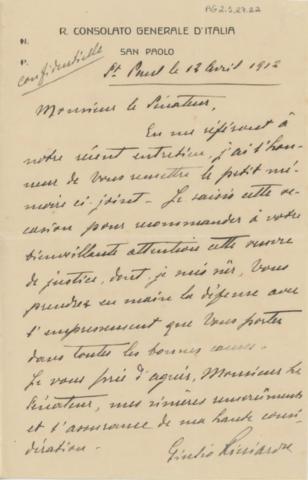 AG2.5.27.22
R. CONSOLATO GENERALE D'ITALIA
SAN PAOLO
N.
P.
Confidentielle
St Paul le 12 avril 1912
Monsieur le Sénateur,
En me référant à
notre récent entretien, j'ai l'hon-
neur de vous remettre le petit mé-
moire ci-joint. Je saisis cette oc-
casion pour recommander à votre
bienveillante attention cette œuvre
de justice, dont, je suis sûr, Vous
prendrez en main la défense avec
l'empressement que Vous portez
dans toutes les bonnes causes.
Je vous prie d'agréer, Monsieur le
Sénateur, mes sincères remerciements
et l'assurance de ma haute consi-
dération.
Giulio Ricciardi